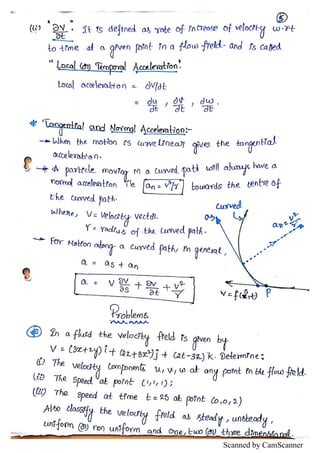 ⑤
(ii) "∂V/∂t": It is defined as rate of increase of velocity w.r.t
to time at a given point in a flow field. and is called
"Local (or) Temporal Acceleration".
Local acceleration = dV/dt
= du/∂t, ∂v/∂t, dw/∂t.
* Tangential and Normal Acceleration:-
→ When the motion is curvelinear gives the tangential
acceleration.
→ A particle moving in a curved path will always have a
normal acceleration i.e an = v²/r towards the centre of
the curved path.
where, V = Velocity vector.
r = radius of the curved path.
→ For Motion along a curved path, in general,
a = as + an
a = V ∂V/∂s + ∂V/∂t + v²/r
curved
as
an = v²/r
V = f(s,t) P
Problems
In a fluid the velocity field is given by
V = (3x+2y) i + (2z+3x²) j + (2t-3z) k. Determine:
(i) The velocity components u, v, w at any point in the flow field.
(ii) The speed at point (1,1,1);
(iii) The speed at time t=2s at point (0,0,2)
Also classify the velocity field as steady, unsteady,
uniform (or) non uniform and one, two (or) three dimensional.
Scanned by CamScanner